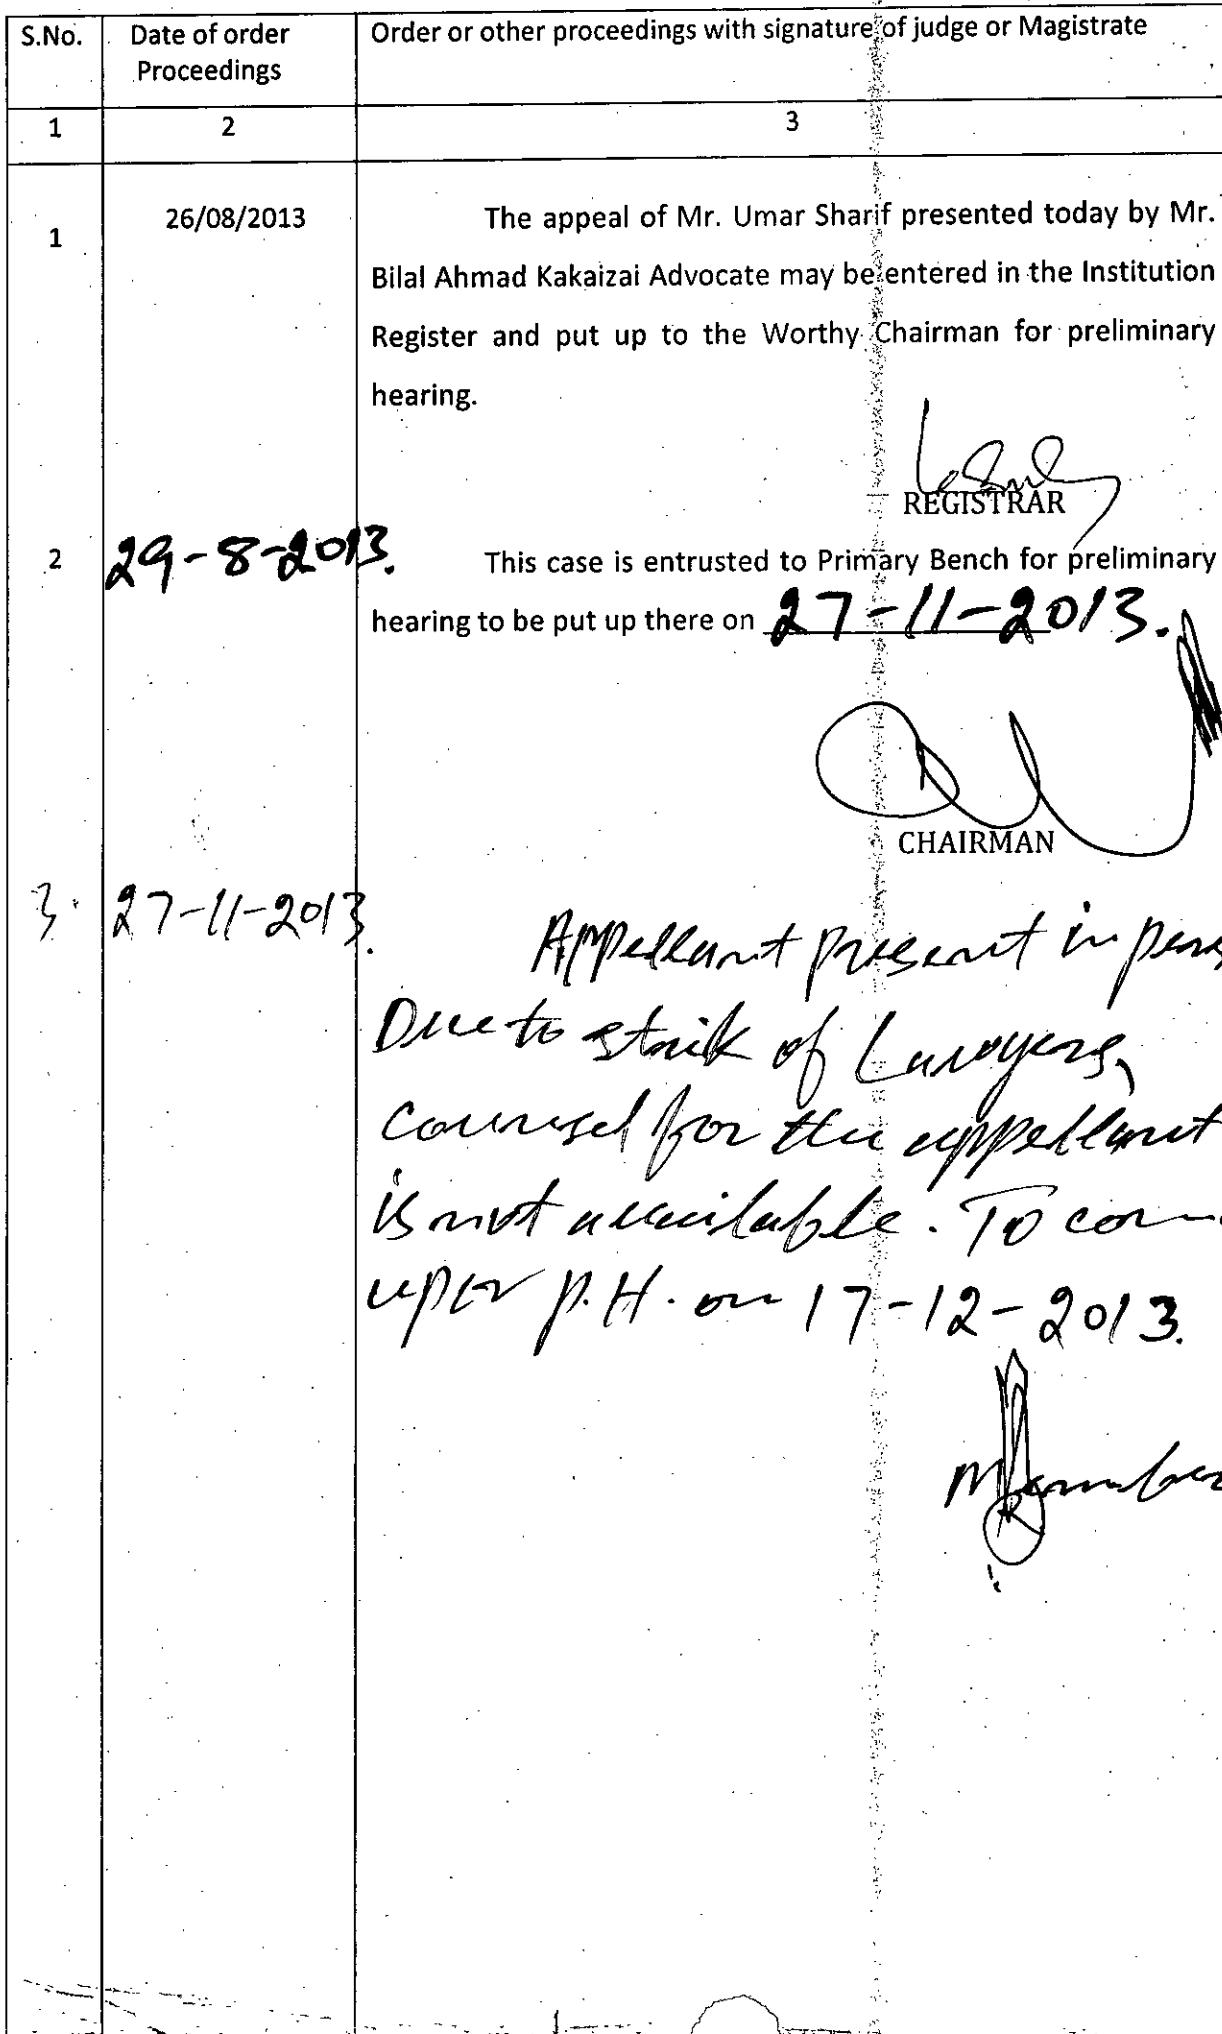 S.No. Date of order Proceedings Order or other proceedings with signature of judge or Magistrate
1 2 3
1 26/08/2013 The appeal of Mr. Umar Sharif presented today by Mr.
Bilal Ahmad Kakaizai Advocate may be entered in the Institution
Register and put up to the Worthy Chairman for preliminary
hearing.
REGISTRAR
2 29-8-2013. This case is entrusted to Primary Bench for preliminary
hearing to be put up there on 27-11-2013.
CHAIRMAN
3. 27-11-2013. Appellant present in pers
Due to strik of Lawyers,
counsel for the appellant
is not available. To com
up for P.H. on 17-12-2013.
Member